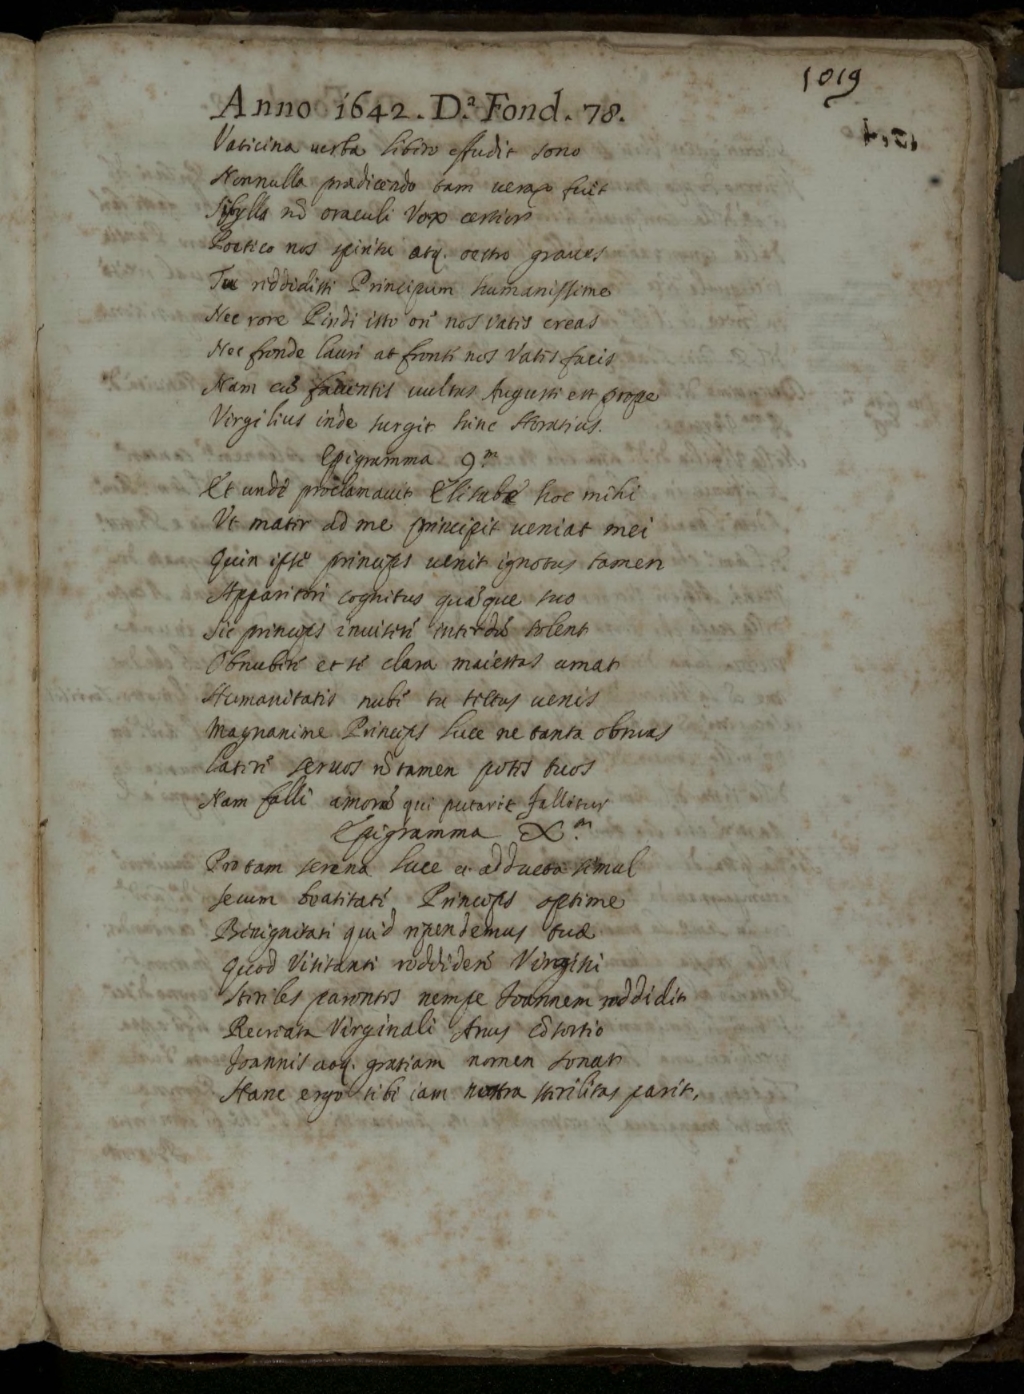 1019
Anno 1642. D.ª Fond. 78.
Vaticina uerba libero effudit sono
Nonnulla prædicendo tam uerax fuit
Sibylla nō oraculi Vox certior
Poetico nos spiritu atq. oestro graues
Tu reddidisti Principum humanissime
Nec rore Pindi isto ore nos vates creas
Nec fronde lauri at fronte nos Vates facis
Nam cū fauentis uultus Augusti est prope
Virgilius inde surgit hinc Horatius.
Epigramma 9.m
Et unde proclamauit Elisabe hoc mihi
Vt mater ad me principis ueniat mei
Quin ipse princeps uenit ignotus tamen
Apparitori cognitus quāque suo
Sic princeps inuisere interdū solent
Obnubere et se clara maiestas amat
Humanitatis nube tu tectus uenis
Magnanime Princeps luce ne tanta obruas
Latere seruos nō tamen potes tuos
Nam falli amorē qui putarit fallitur
Epigramma X.m
Pro tam serena luce a adducta simul
secum beatitate Princeps optime
Benignitati quid rependemus tuæ
Quod Visitanti reddidere Virgini
Steriles parentes nempe Joannem reddidit
Recreata Virginali Anus cōsortio
Joannis aoq. gratiam nomen sonat
Hanc ergo tibi iam nostra sterilitas parit.